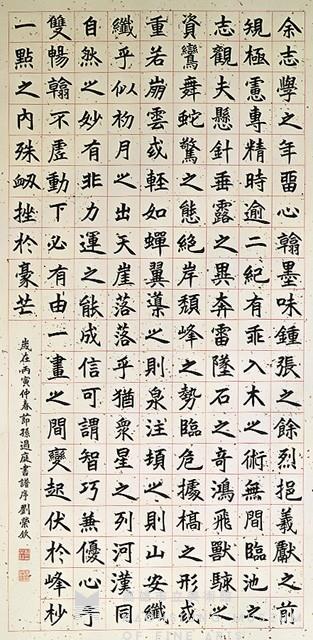 余志學之年留心翰墨味鍾張之餘烈挹羲獻之前
規極慮專精時逾二紀有乖入木之術無間臨池之
志觀夫懸針垂露之異奔雷墜石之奇鴻飛獸駭之
資鸞舞蛇驚之態絕岸頹峰之勢臨危據槁之形或
重若崩雲或輕如蟬翼導之則泉注頓之則山安纖
纖乎似初月之出天崖落落乎猶眾星之列河漢同
自然之妙有非力運之能成信可謂智巧兼優心手
雙暢翰不虛動下必有由一畫之間變起伏於峰杪
一點之內殊衄挫於豪芒
歲在丙寅仲春節孫過庭書譜序劉榮欽
OF FINE ARTS